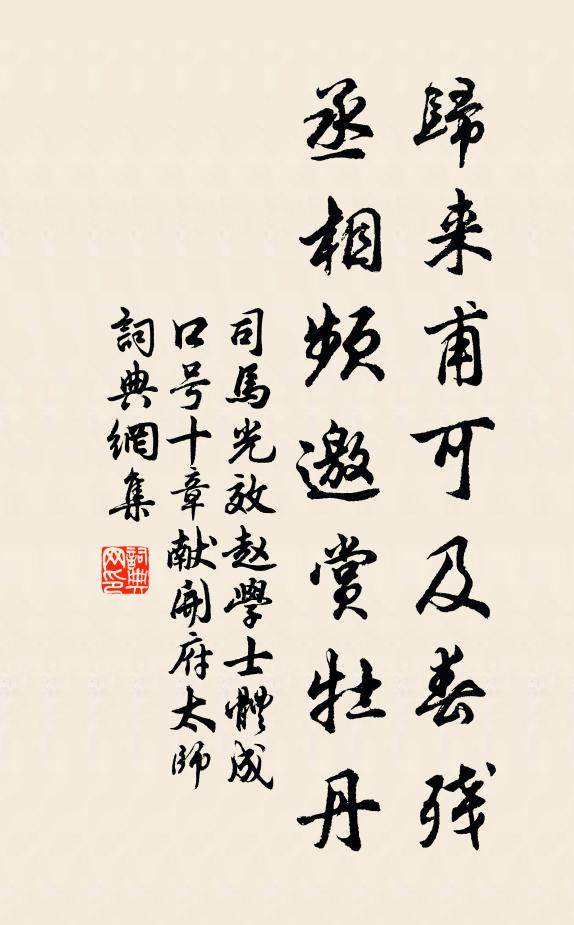 歸来甫可及春残
丞相频邀赏牡丹
司馬光效赵學士體成
口号十章献開府太师
詞典網集
詞典网印